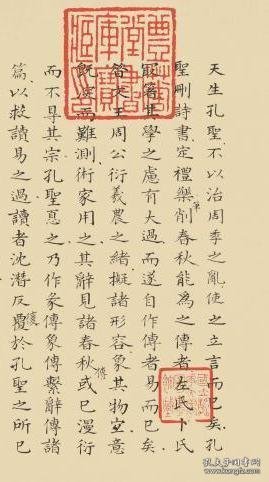 天生孔聖不以治周季之亂使之立言而已矣孔
聖刪詩書定禮樂削春秋能為之傳者左氏卜氏
筆
最著其學之慮有大過而遂自作傳者易而已矣
文王周公衍義農之緒擬諸形容象其物宜意
既而難測術家用之其辭見諸春秋或已漫衍
修
而不尋其宗孔聖憂之乃作彖傳象傳繫辭傳諸
篇以救讀易之過讀者沈潛反覆於孔聖之所已
復
孔夫子旧书网